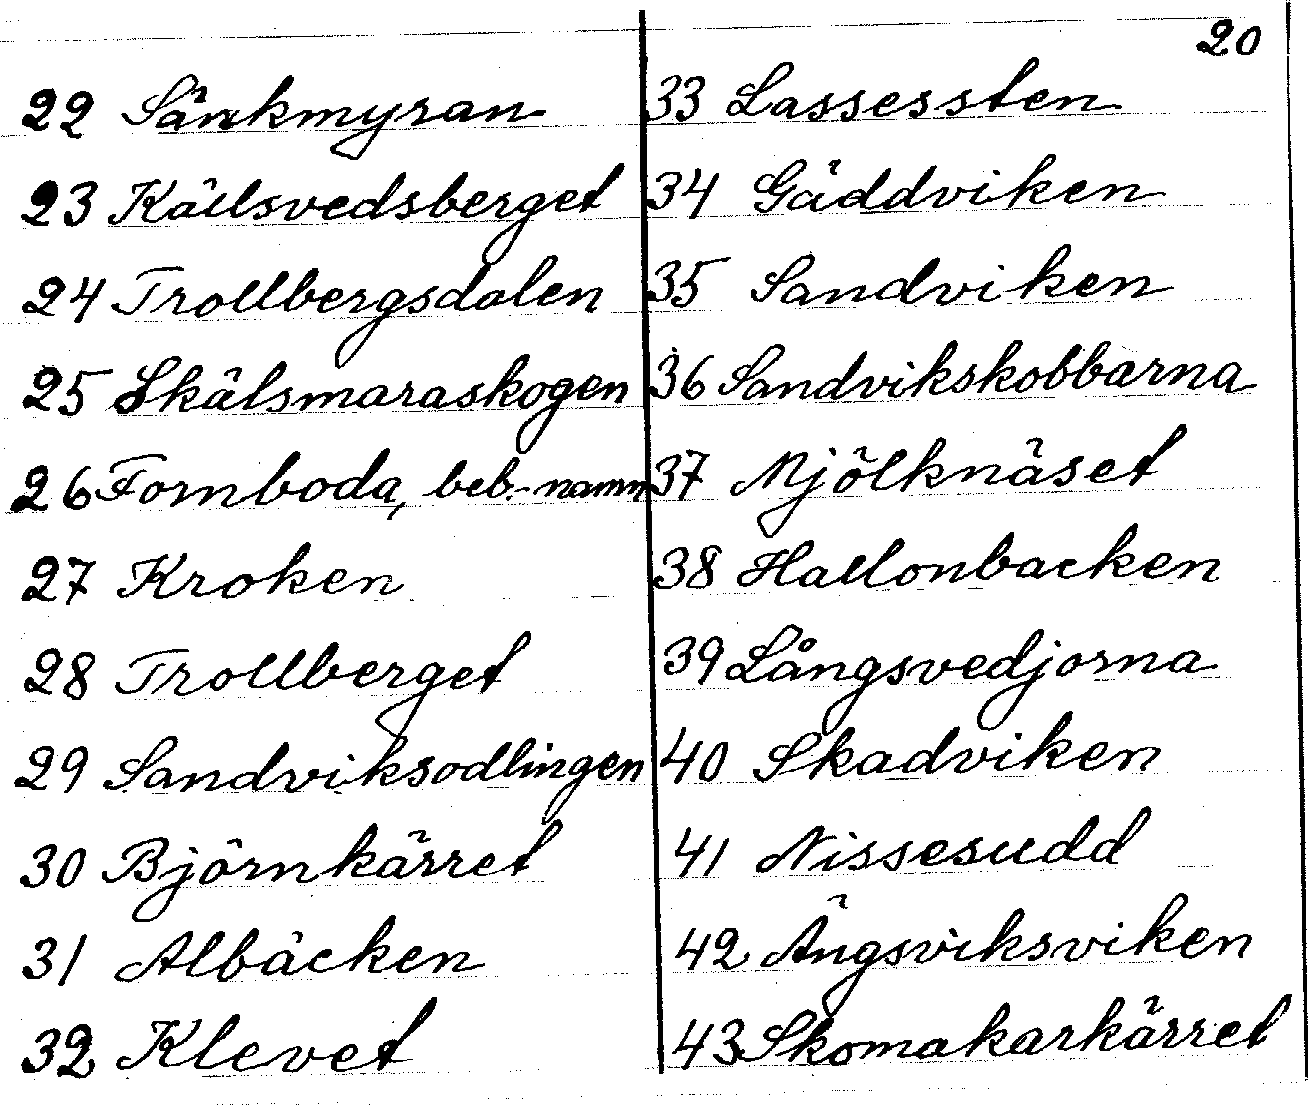 20
22 Sänkmyran
23 Källsvedsberget
24 Trollbergsdalen
25 Skälsmaraskogen
26 Fornboda, beb.-namn
27 Kroken
28 Trollberget
29 Sandviksodlingen
30 Björnkärret
31 Albäcken
32 Klevet
33 Lassessten
34 Gäddviken
35 Sandviken
36 Sandvikskobbarna
37 Mjölknäset
38 Hallonbacken
39 Långsvedjorna
40 Skadviken
41 Nissesudd
42 Ängsviksviken
43 Skomakarkärret